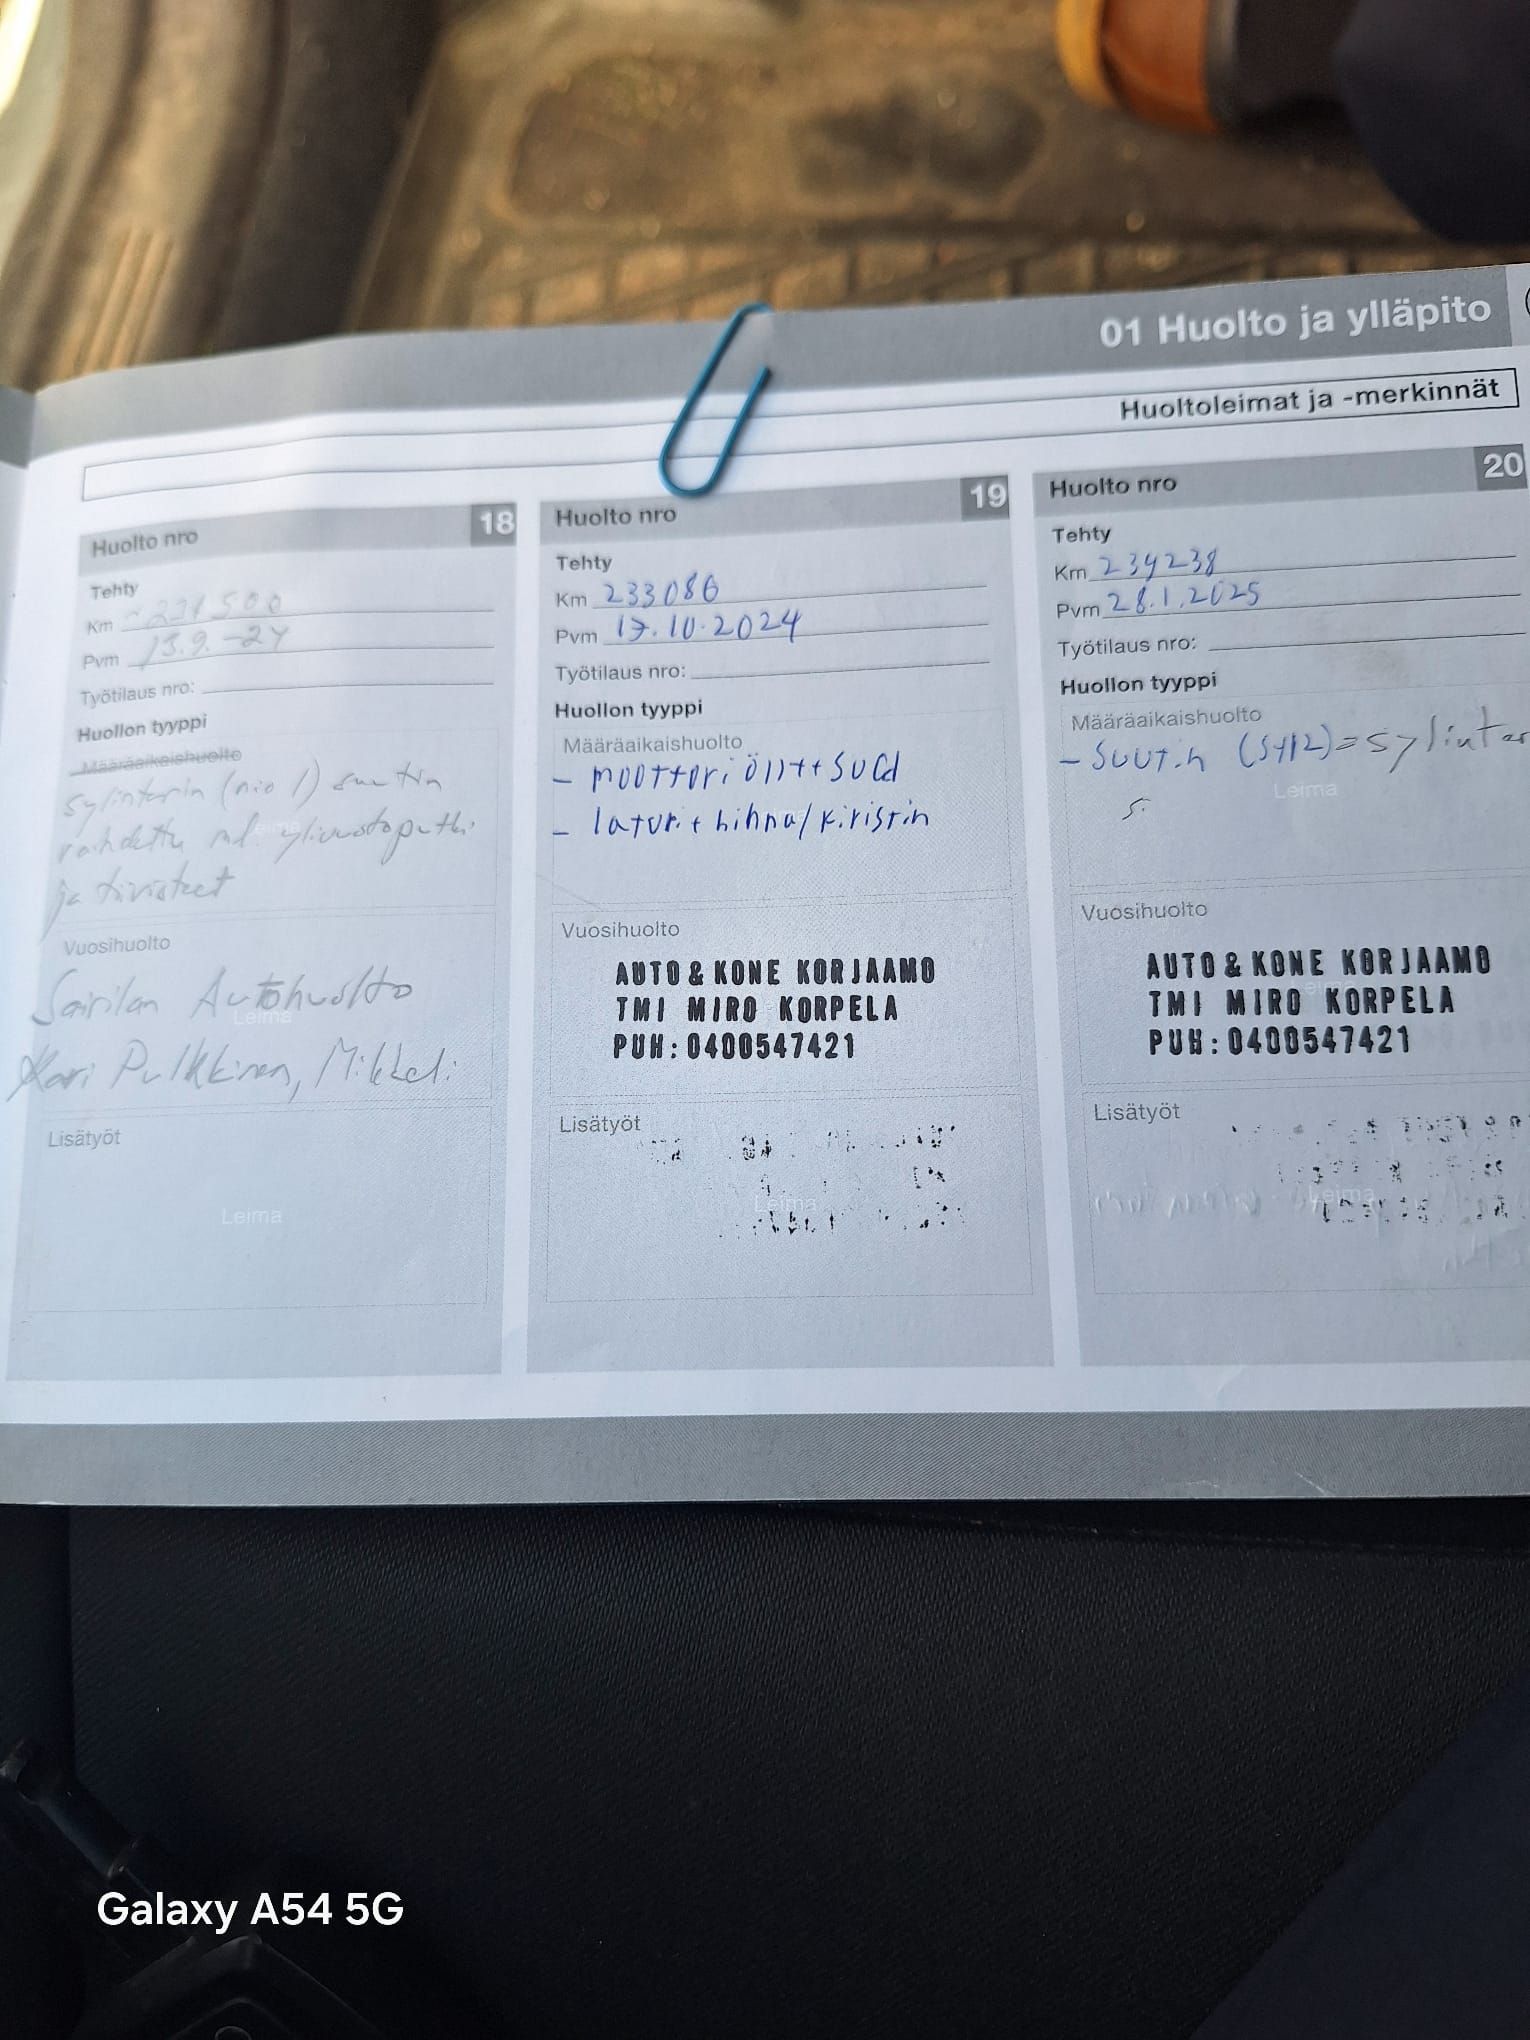 01 Huolto ja ylläpito
Huoltoleimat ja -merkinnät
Huolto nro 18
Tehty
Km
Pvm 13.9.-24
Työtilaus nro:
Huollon tyyppi
Määräaikaishuolto
sylinterin (nro 1) suutin
vaihdettu
ja tiivisteet
Vuosihuolto
Sairilan Autohuolto
Leima
Kari Pulkkinen, Mikkeli
Lisätyöt
Leima
Huolto nro 19
Tehty
Km 233086
Pvm 17.10.2024
Työtilaus nro:
Huollon tyyppi
Määräaikaishuolto
- moottoriöljyt+suod
- laturi + hihna/kiristin
Vuosihuolto
AUTO & KONE KORJAAMO
TMI MIRO KORPELA
PUH: 0400547421
Lisätyöt
Leima
Huolto nro 20
Tehty
Km 234238
Pvm 28.1.2025
Työtilaus nro:
Huollon tyyppi
Määräaikaishuolto
- suutin (syl2)=sylinter
Leima
Vuosihuolto
AUTO & KONE KORJAAMO
TMI MIRO KORPELA
PUH: 0400547421
Lisätyöt
Leima
Galaxy A54 5G